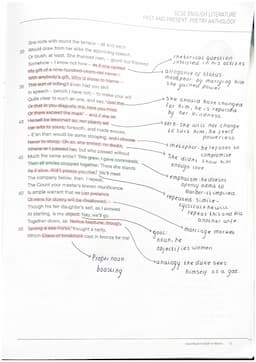 GCSE ENGLISH LITERATURE
PAST AND PRESENT: POETRY ANTHOLOGY
She rode with round the terrace – all and each
30 Would draw from her alike the approving speech,
Or blush, at least. She thanked men, – good! but thanked
Somehow – I know not how – as if she ranked
My gift of a nine-hundred-years-old name
With anybody's gift. Who'd stoop to blame
35 This sort of trifling? Even had you skill
In speech – (which I have not) – to make your will
Quite clear to such an one, and say, 'Just this
Or that in you disgusts me; here you miss,
Or there exceed the mark' – and if she let
40 Herself be lessoned so, nor plainly set
Her wits to yours, forsooth, and made excuse,
– E'en then would be some stooping, and I choose
Never to stoop. Oh sir, she smiled, no doubt,
Whene'er I passed her; but who passed without
45 Much the same smile? This grew; I gave commands;
Then all smiles stopped together. There she stands
As if alive. Will't please you rise? We'll meet
The company below, then. I repeat,
The Count your master's known munificence
50 Is ample warrant that no just pretence
Of mine for dowry will be disallowed;
Though his fair daughter's self, as I avowed
At starting, is my object. Nay, we'll go
Together down, sir. Notice Neptune, though,
55 Taming a sea-horse, thought a rarity,
Which Claus of Innsbruck cast in bronze for me!
rhetorical question
justified in his actions
arrogance of status
marrying him she
gained power
she should have changed
for him, he is
by her kindness
verb - she will not change
to suit him, he feels
powerless
metaphor - he refuses to
compromise
she didn't show him
enough love
emphasis - he doesn't
repeated simile -
repeat this and his
another wife
marriage market
noun, he
objectifies women
analogy the duke sees
himself as a god.
Proper noun
boasting